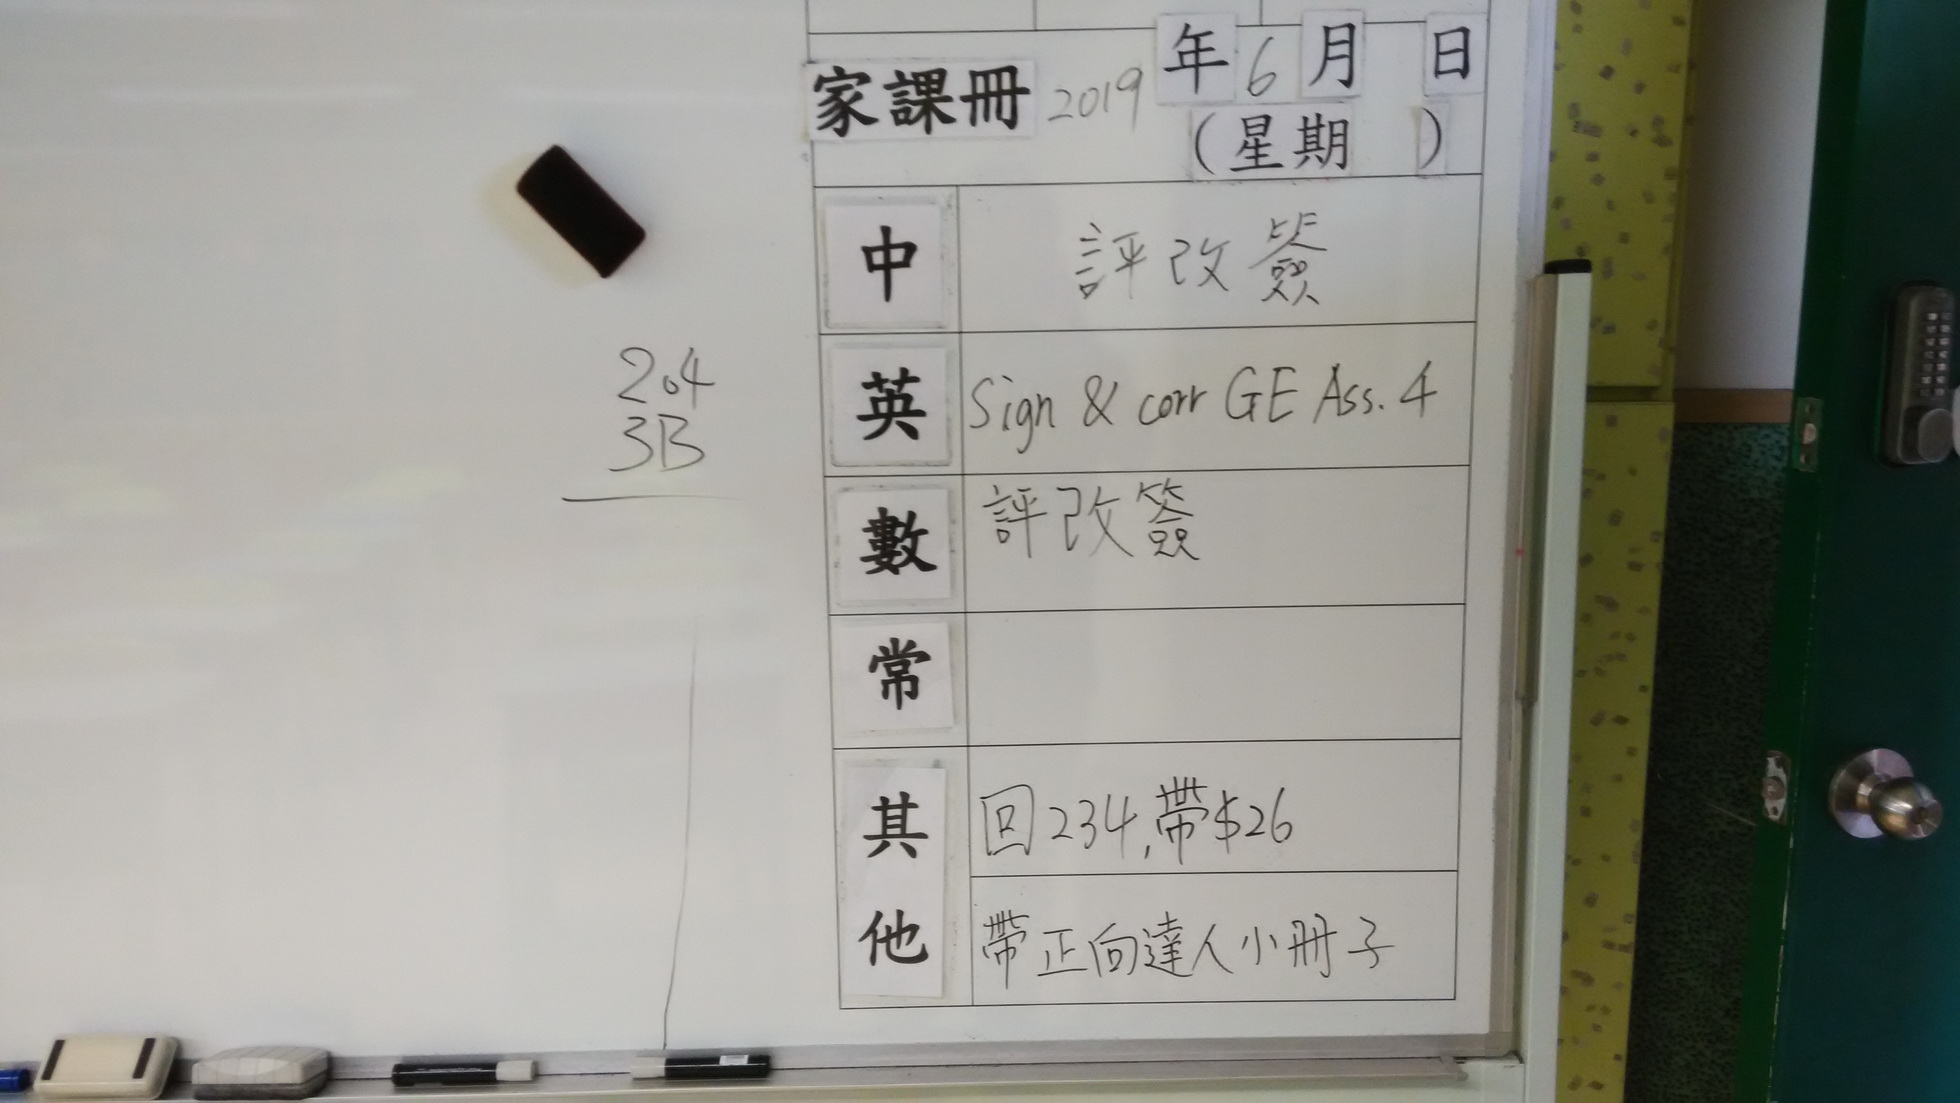 家課冊 2019 年 6 月 日
(星期 )
中 評改簽
英 Sign & corr GE Ass. 4
數 評改簽
常
其他 回234,帶$26
帶正向達人小冊子
2.4
3B